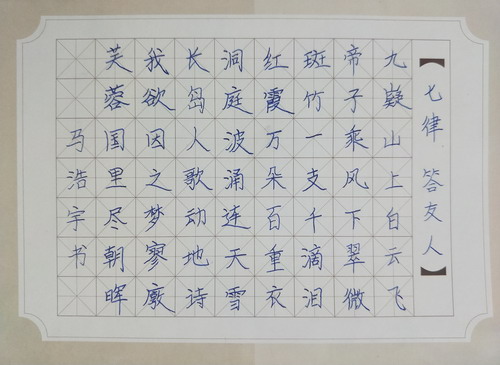 【七律 答友人】
九嶷山上白云飞
帝子乘风下翠微
斑竹一支千滴泪
红霞万朵百重衣
洞庭波涌连天雪
长岛人歌动地诗
我欲因之梦寥廓
芙蓉国里尽朝晖
马浩宇书